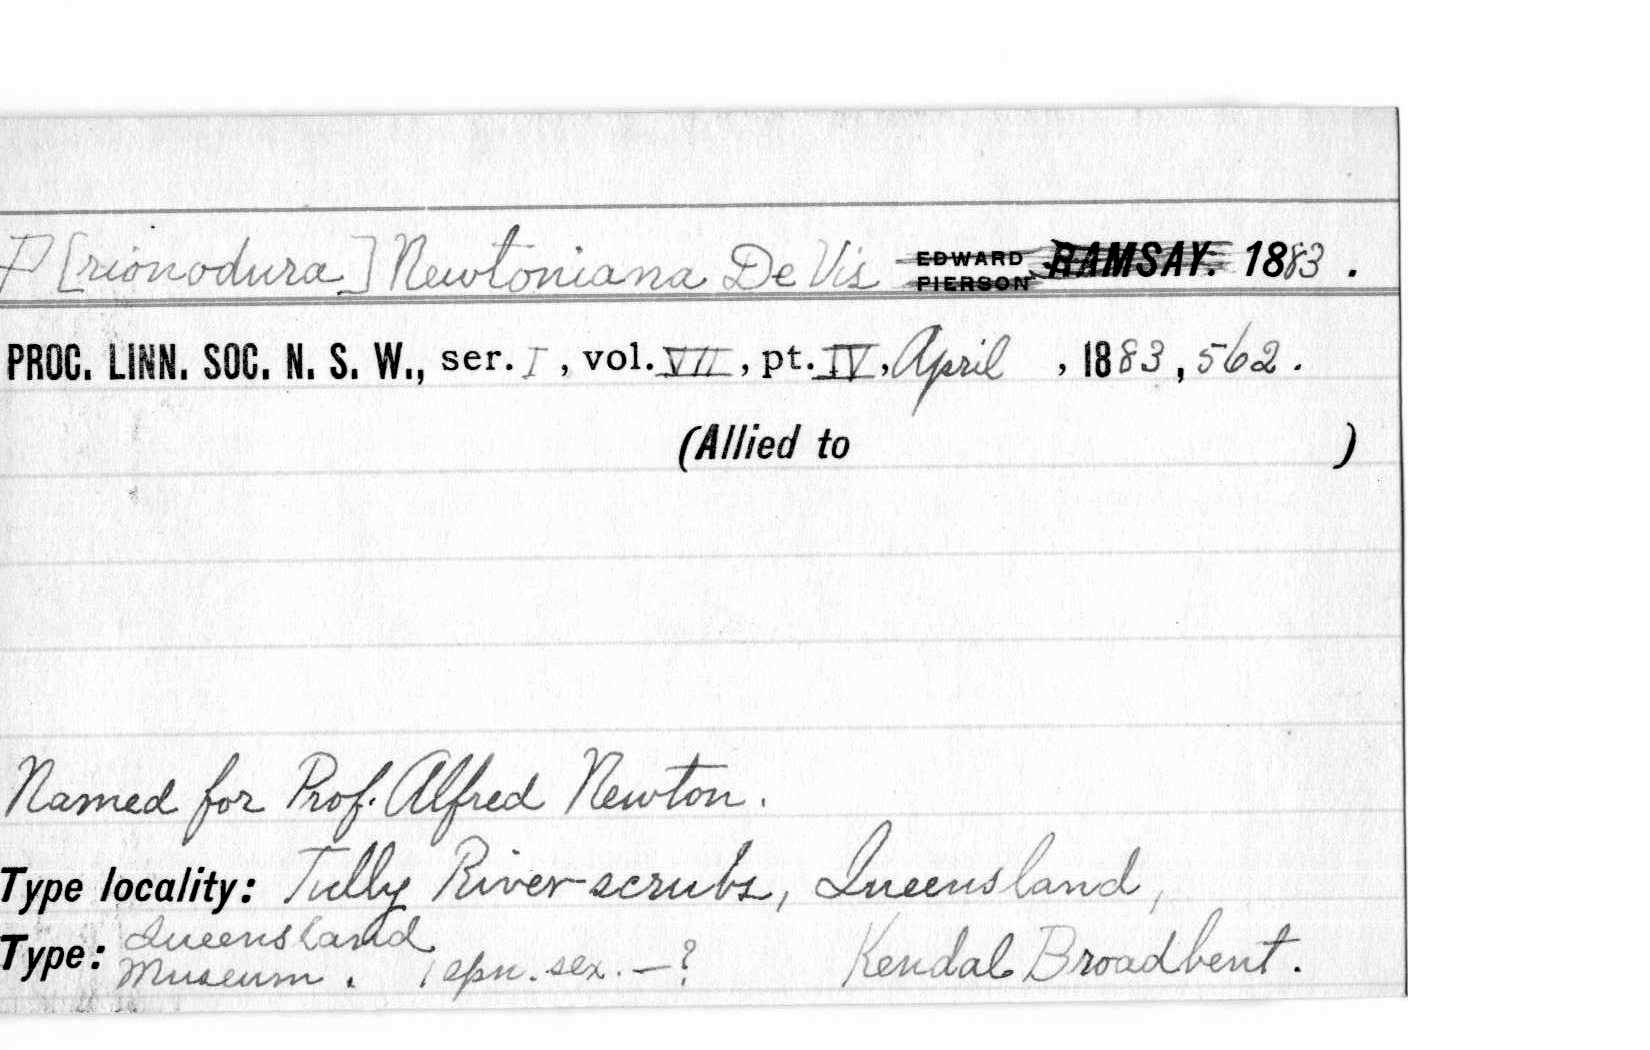 P[rionodura] Newtoniana De Vis EDWARD PIERSON RAMSAY. 1883.
PROC. LINN. SOC. N. S. W., ser. I, vol. VII, pt. IV, April, 1883, 562.
(Allied to )
Named for Prof. Alfred Newton.
Type locality: Tully River-scrubs, Queensland,
Type: Queensland Museum. 1 spn. sex. —? Kendal Broadbent.